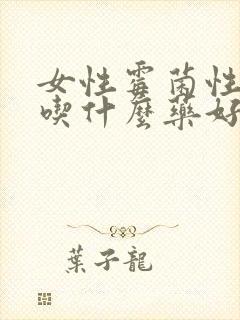 女性霉菌性
喫什麼藥好
葉子龍